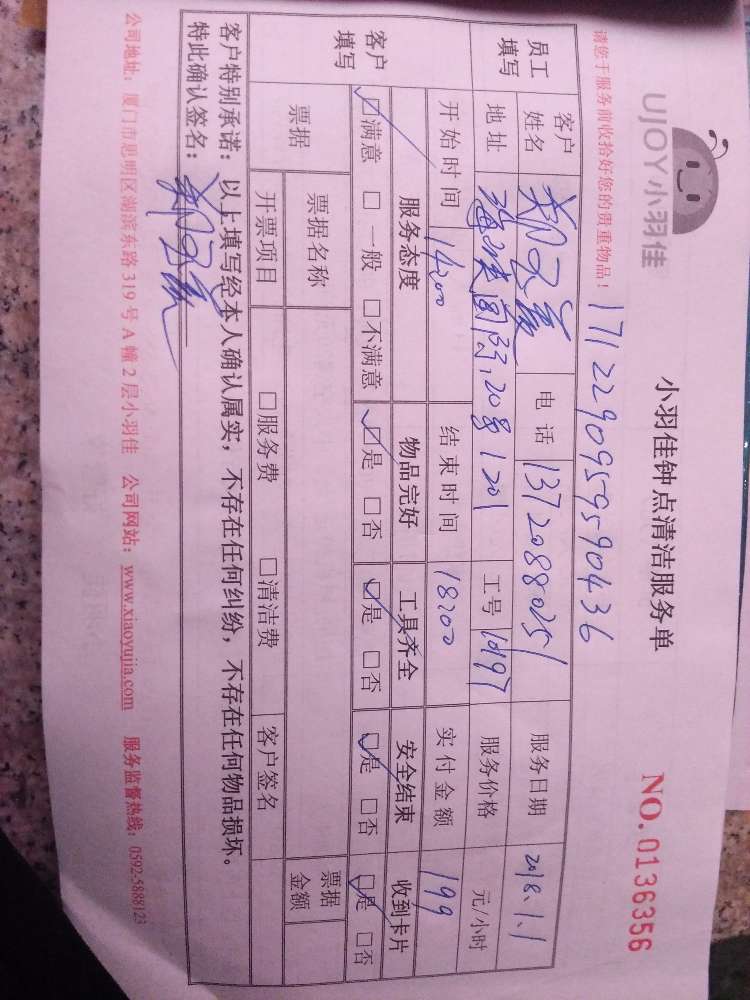 UJOY小羽佳
小羽佳钟点清洁服务单
NO.0136356
请您于服务前收拾好您的贵重物品!
1712290959590436
员工填写
客户姓名 郑 电话 13720880251 服务日期 2018.1.1
地址 图133,208 1201 工号 10197 服务价格 元/小时
开始时间 14:00 结束时间 18:00 实付金额 199
客户填写
服务态度 物品完好 工具齐全 安全结束 收到卡片
☑满意 □一般 □不满意 ☑是 □否 ☑是 □否 ☑是 □否 ☑是 □否
票据 票据名称 票据金额
开票项目 □服务费 □清洁费 客户签名
客户特别承诺:以上填写经本人确认属实,不存在任何纠纷,不存在任何物品损坏。
特此确认签名: 郑
公司地址:厦门市思明区湖滨东路319号A幢2层小羽佳 公司网站:www.xiaoyujia.com 服务监督热线:0592-5888123